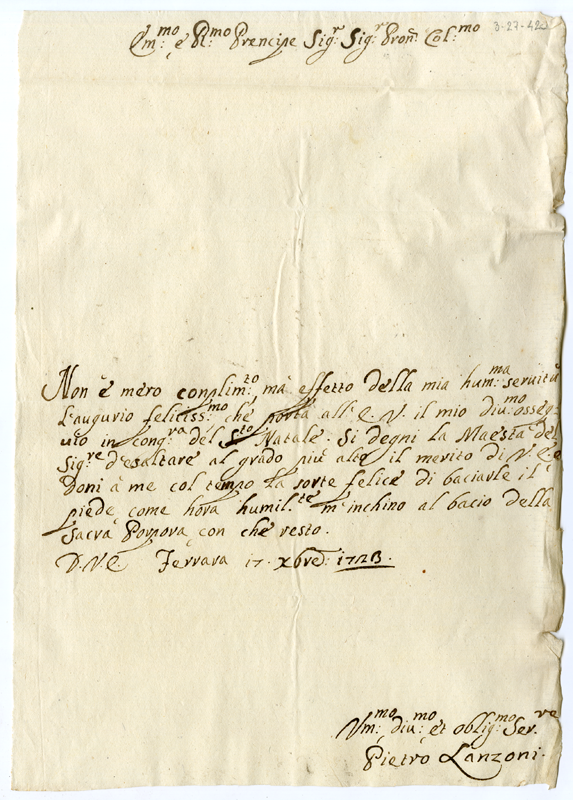 3-27-42
Em:mo e Rl:mo Prencipe Sig:r Sig:r Pron: Col:mo
Non è mero conplim:to, mà effetto della mia hum:ma seruitù
L'augurio feliciss:mo che porta all' E. V. il mio diu:mo osseq-
uio in cong:ra del S:to Natale. Si degni La Maestà del
Sig:re d'esaltare al grado più alto il merito di V. E. e
Doni à me col tempo La sorte felice di baciarle il
piede come hora humil:te m'inchino al bacio della
Sacra Porpora, con che resto.
D. V. E. Ferrara 17. Xbre: 1723.
Vm:mo diu:mo et oblig:mo Ser:re
Pietro Lanzoni.